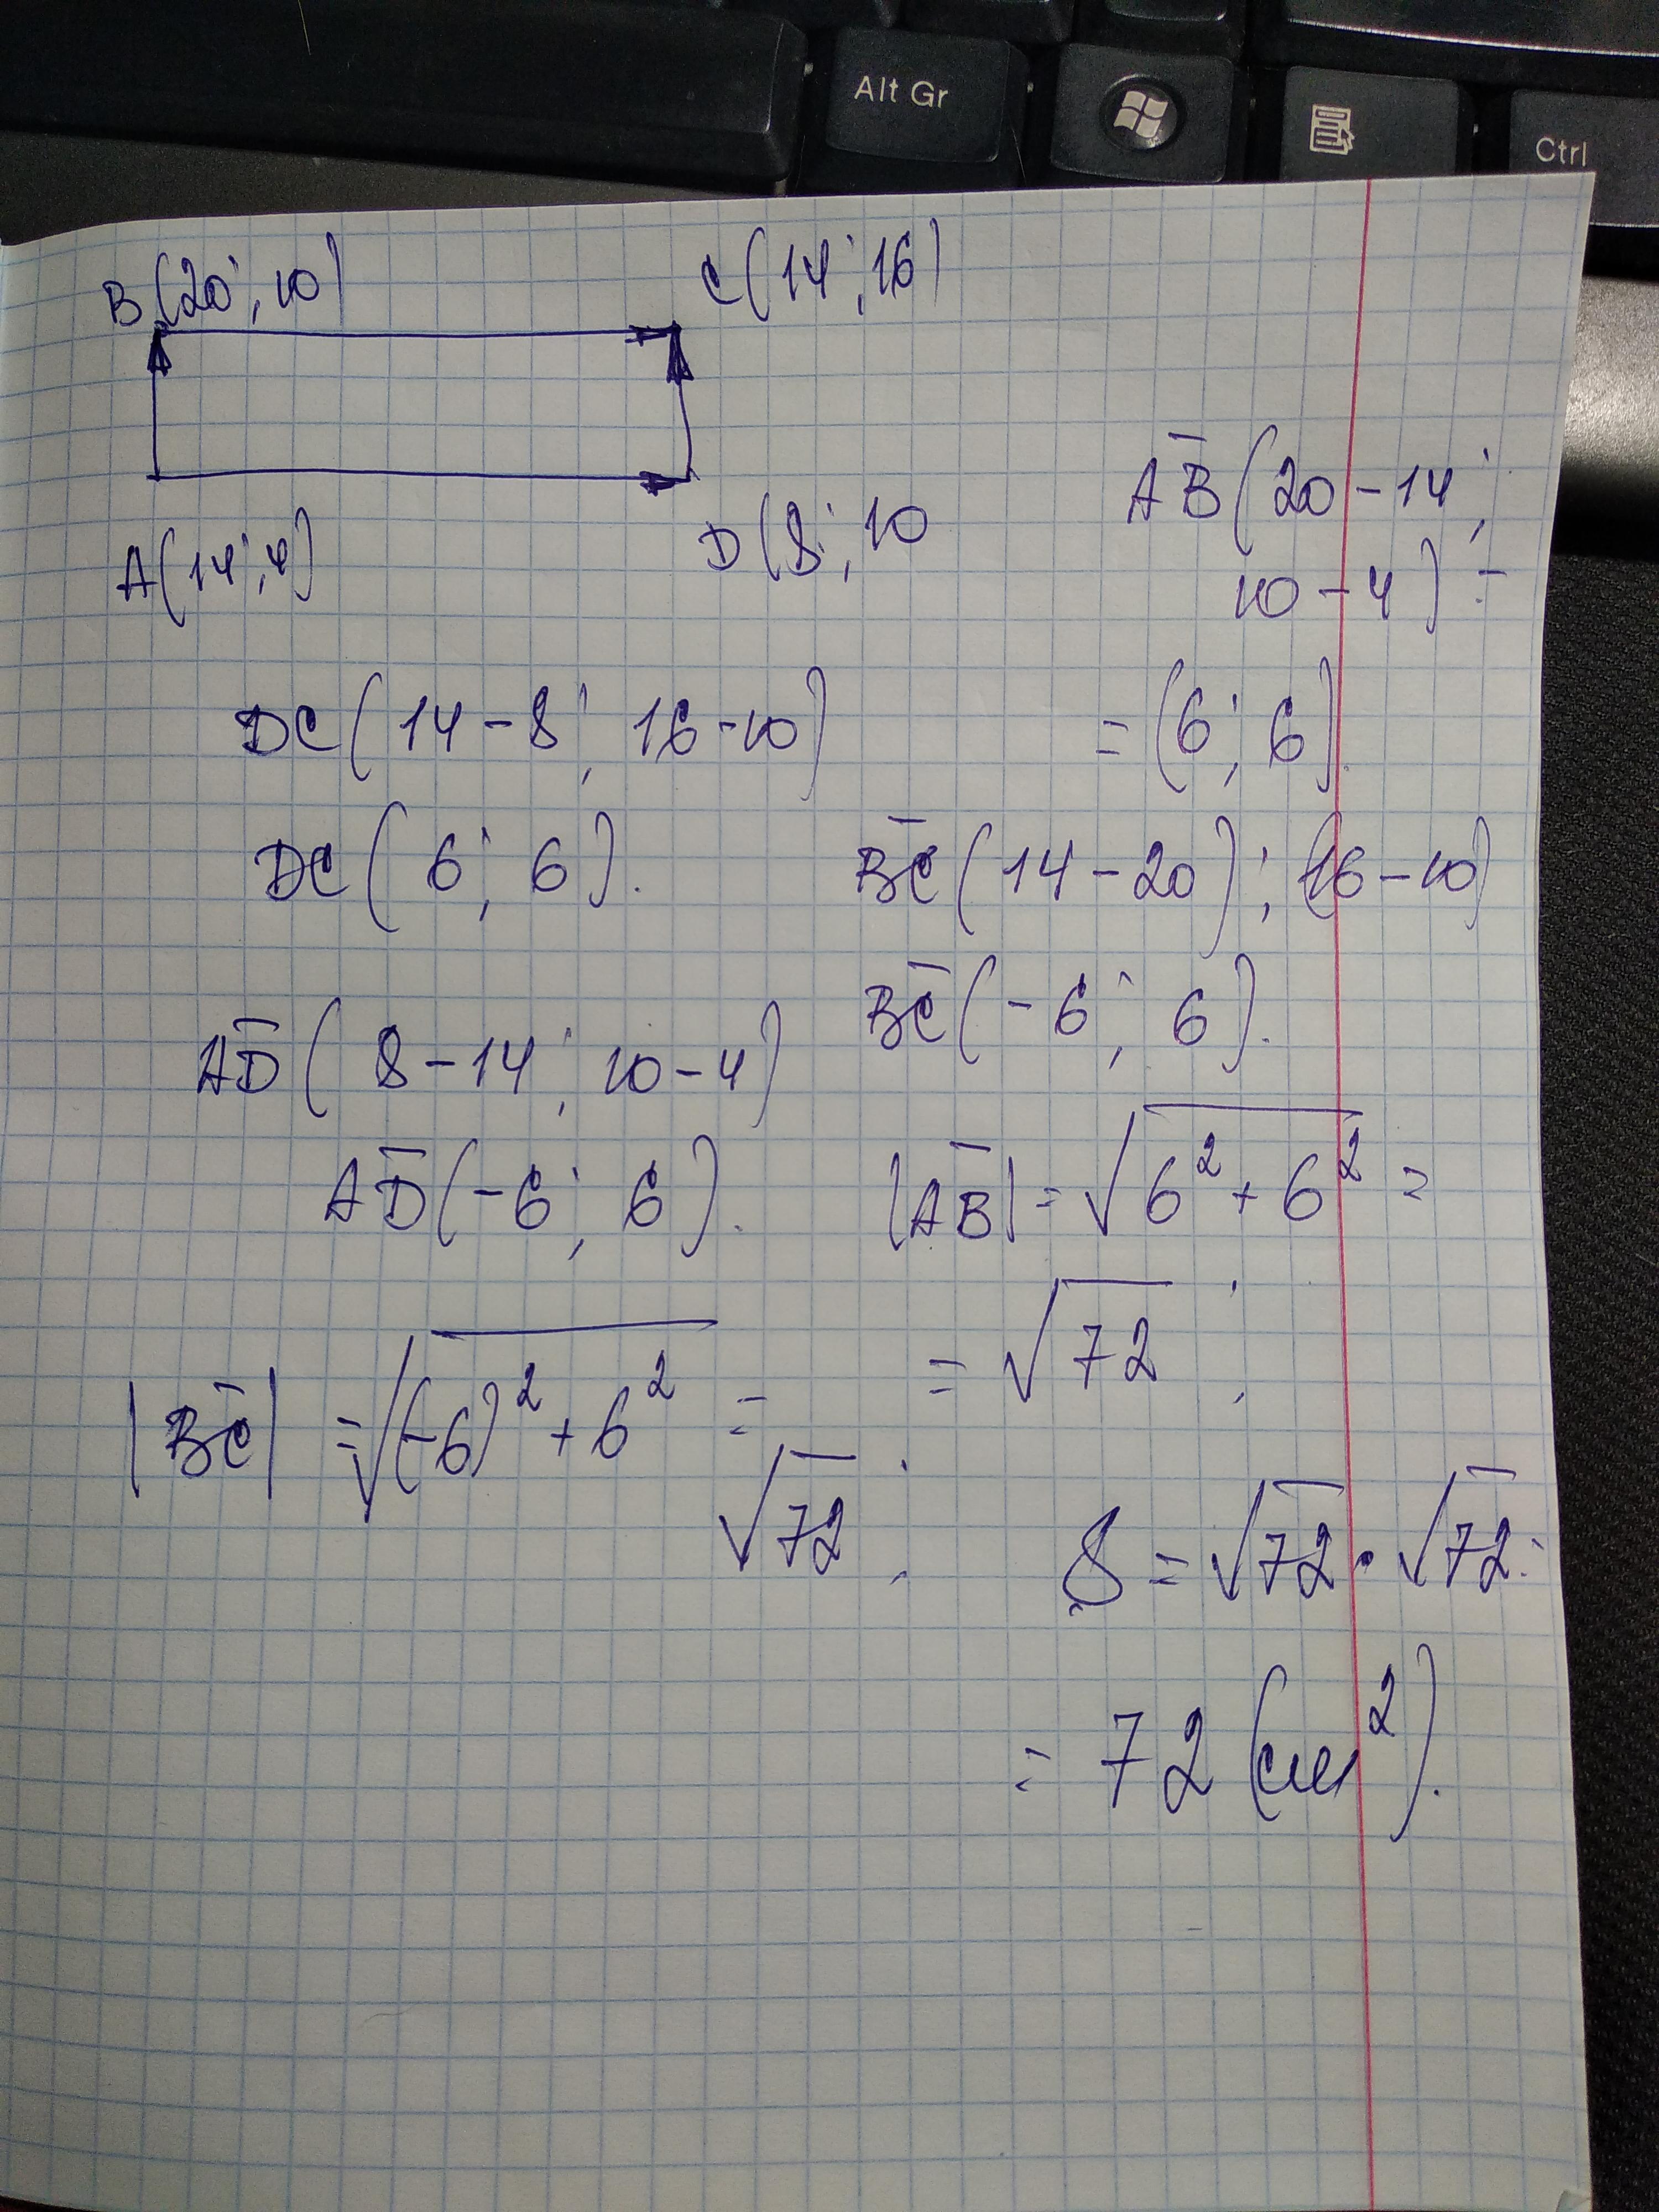 Alt Gr
Ctrl
B(20; 10)
C(14; 16)
A(14; 4)
D(8; 10
AB(20-14;
10-4) =
DC(14-8; 16-10)
= (6; 6).
DC(6; 6).
BC(14-20); (16-10)
BC(-6; 6).
AD(8-14; 10-4)
AD(-6; 6).
|AB| = √6² + 6² =
= √72;
|BC| = √(-6)² + 6² =
√72;
S = √72 · √72 =
= 72 (см²).